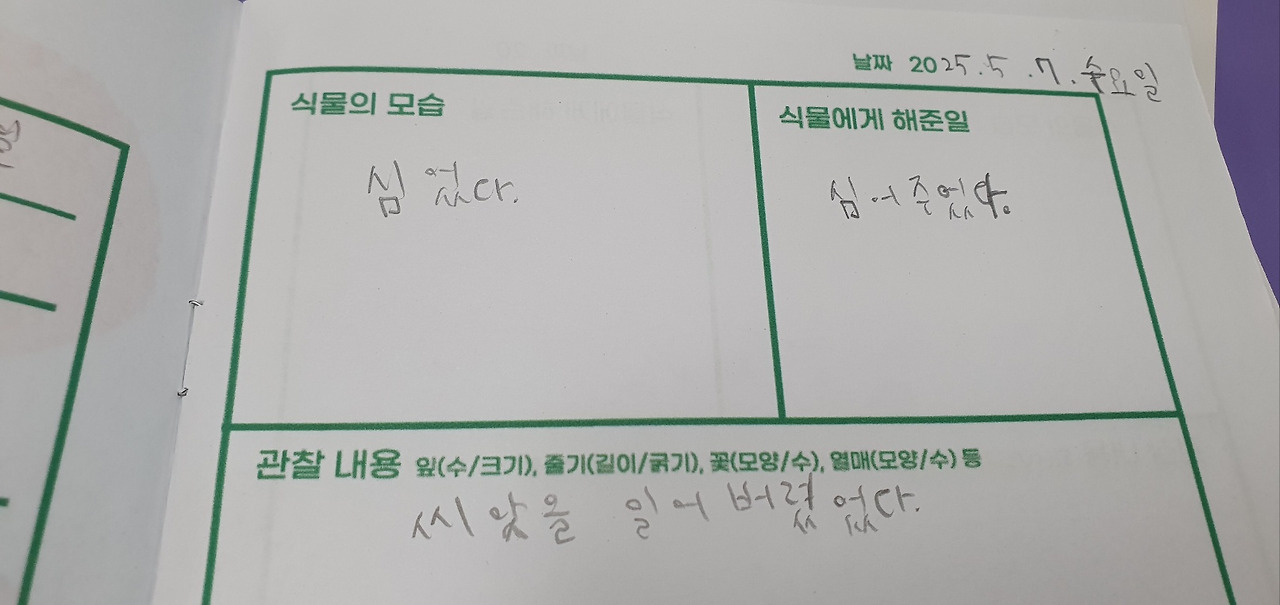 날짜 2025.5.7.수요일
식물의 모습
심었다.
식물에게 해준일
심어주었다.
관찰 내용 잎(수/크기), 줄기(길이/굵기), 꽃(모양/수), 열매(모양/수) 등
씨앗을 잃어버렸었다.